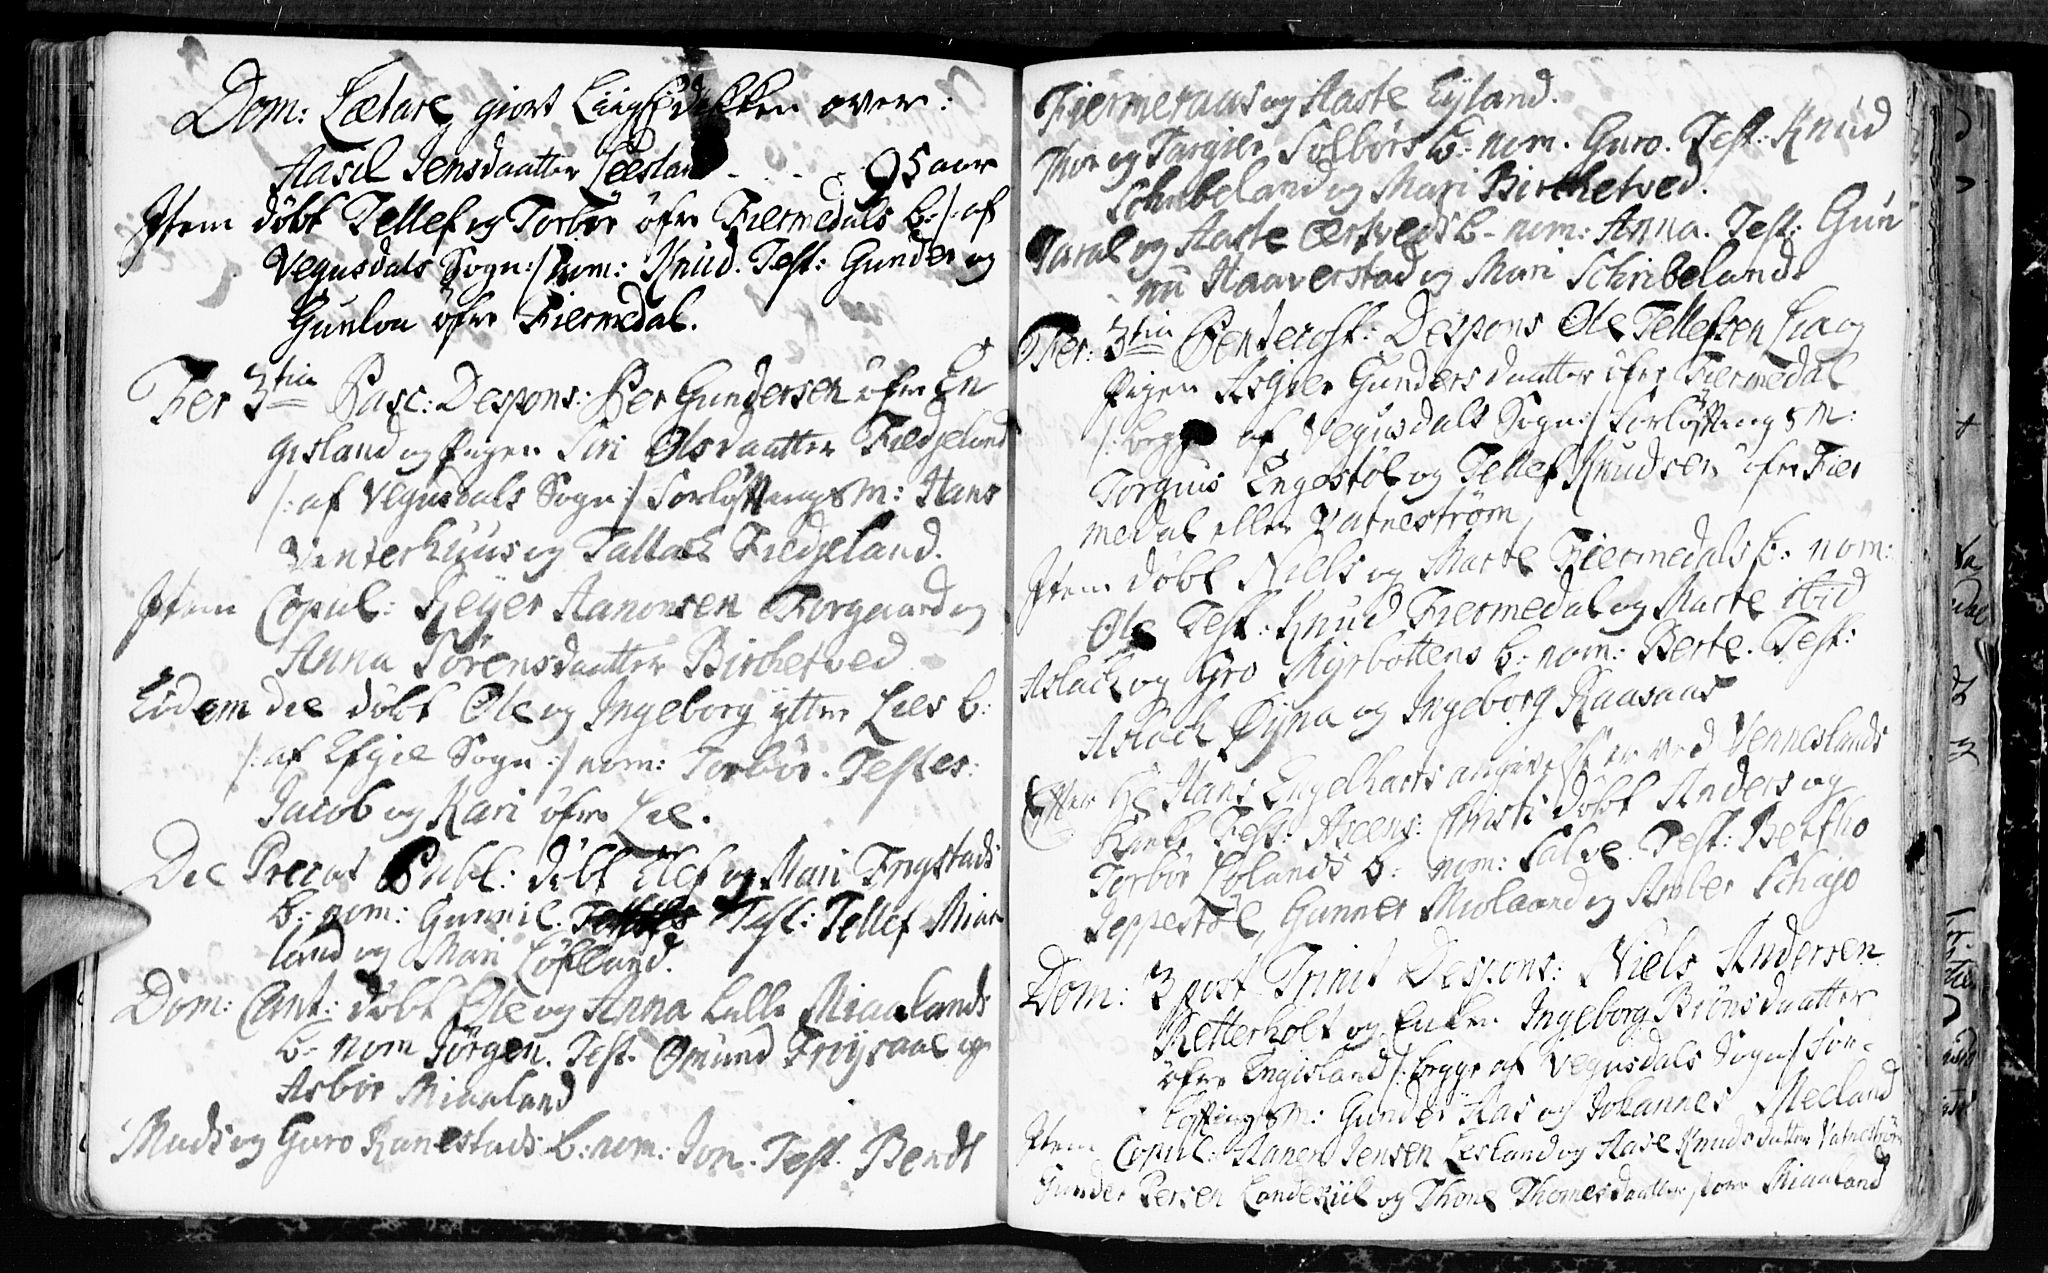 Dom: Lætare giort Liigprædikken over:
Aasil Jensdaatter Leeland - . . - 95 aar
Item döbt Tellef og Torbör öfre Fiermedals b: /: af
Vegusdals Sogn :/ nom: Knud. Test: Gunder og
Gunlou öfre Fiermedal.
Fer 3tia Pasc: Despons: Per Gundersen öfre En
gisland og Pigen Siri Olsdaatter Fiedjeland
/: af Vegusdals Sogn :/ Forlöftnings M: Hans
Venterhuus og Tallack Fiedjeland.
Item Copul: Reijer Aanonsen Torgaard og
Anna Sörensdaatter Birchetved
Eodem die döbt Ole og Ingeborg ÿttre Lies b:
/: af Efgie Sogn :/ nom: Torbör. Testes:
Jacob og Kari öfre Lie.
Die Precat Publ: döbt Elef og Mari Frigstads
b: nom: Gunnil. Test: Tellef Miaa
land og Mari Löfland.
Dom: Cant: döbt Ole og Anna Lille Miaalands
b- nom Jörgen. Test. Omund Fröÿsaae og
Asbör Miaaland
Mads og Guro Ranestads b: nom: Jon. Test. Bendt
Fiermeraas og Aaste Eÿland.
Thor og Targier Solbörs b: nom. Guro. Test: Knud
Schribeland og Mari Birchetved.
Taral og Aaste Ærtveds b- nom: Anna. Test: Gun
nu Haaverstad og Mari Schribeland
Fer: 3tia Pentecost: Despons Ole Tellefsen Lia og
Pigen Asgier Gundersdaatter öfre Fiermedal
/: begge af Vegusdals Sogn :/ Forlöftnings M:
Torguus Engestöl og Tellef Knudsen öfre Fier
medal eller Vatneström
Item döbt Niels og Marte Fiermedals b: nom:
Ole Test: Knud Fiermedal og Marte ibid
Aslach og Gro Myrbottens b: nom: Berte. Test:
Aslach Öÿna og Ingeborg Raasaas
Efter Hr Hans Engelharts angivelse er ved Venneslands
Kirke Fest: Ascens: Christi döbt Anders og
Torbör Lölands b: nom: Salve. Test: Bertho
Jeppestöl, Gunner Molaand og Amber Schajo
Dom: 3 post Trinit Despons: Niels Andersen
Retterholt og Enken Ingeborg Brönsdaatter
öfre Engisland /: begge af Vegusdals Sogn / For-
löftnings M: Gunder Aas og Johannes Meeland
Item Copul: Aanen Jensen Lesland og Aase Knudsdatter Vatneström
Gunder Persen Landekiil og Thone Thomesdaatter store Miaaland